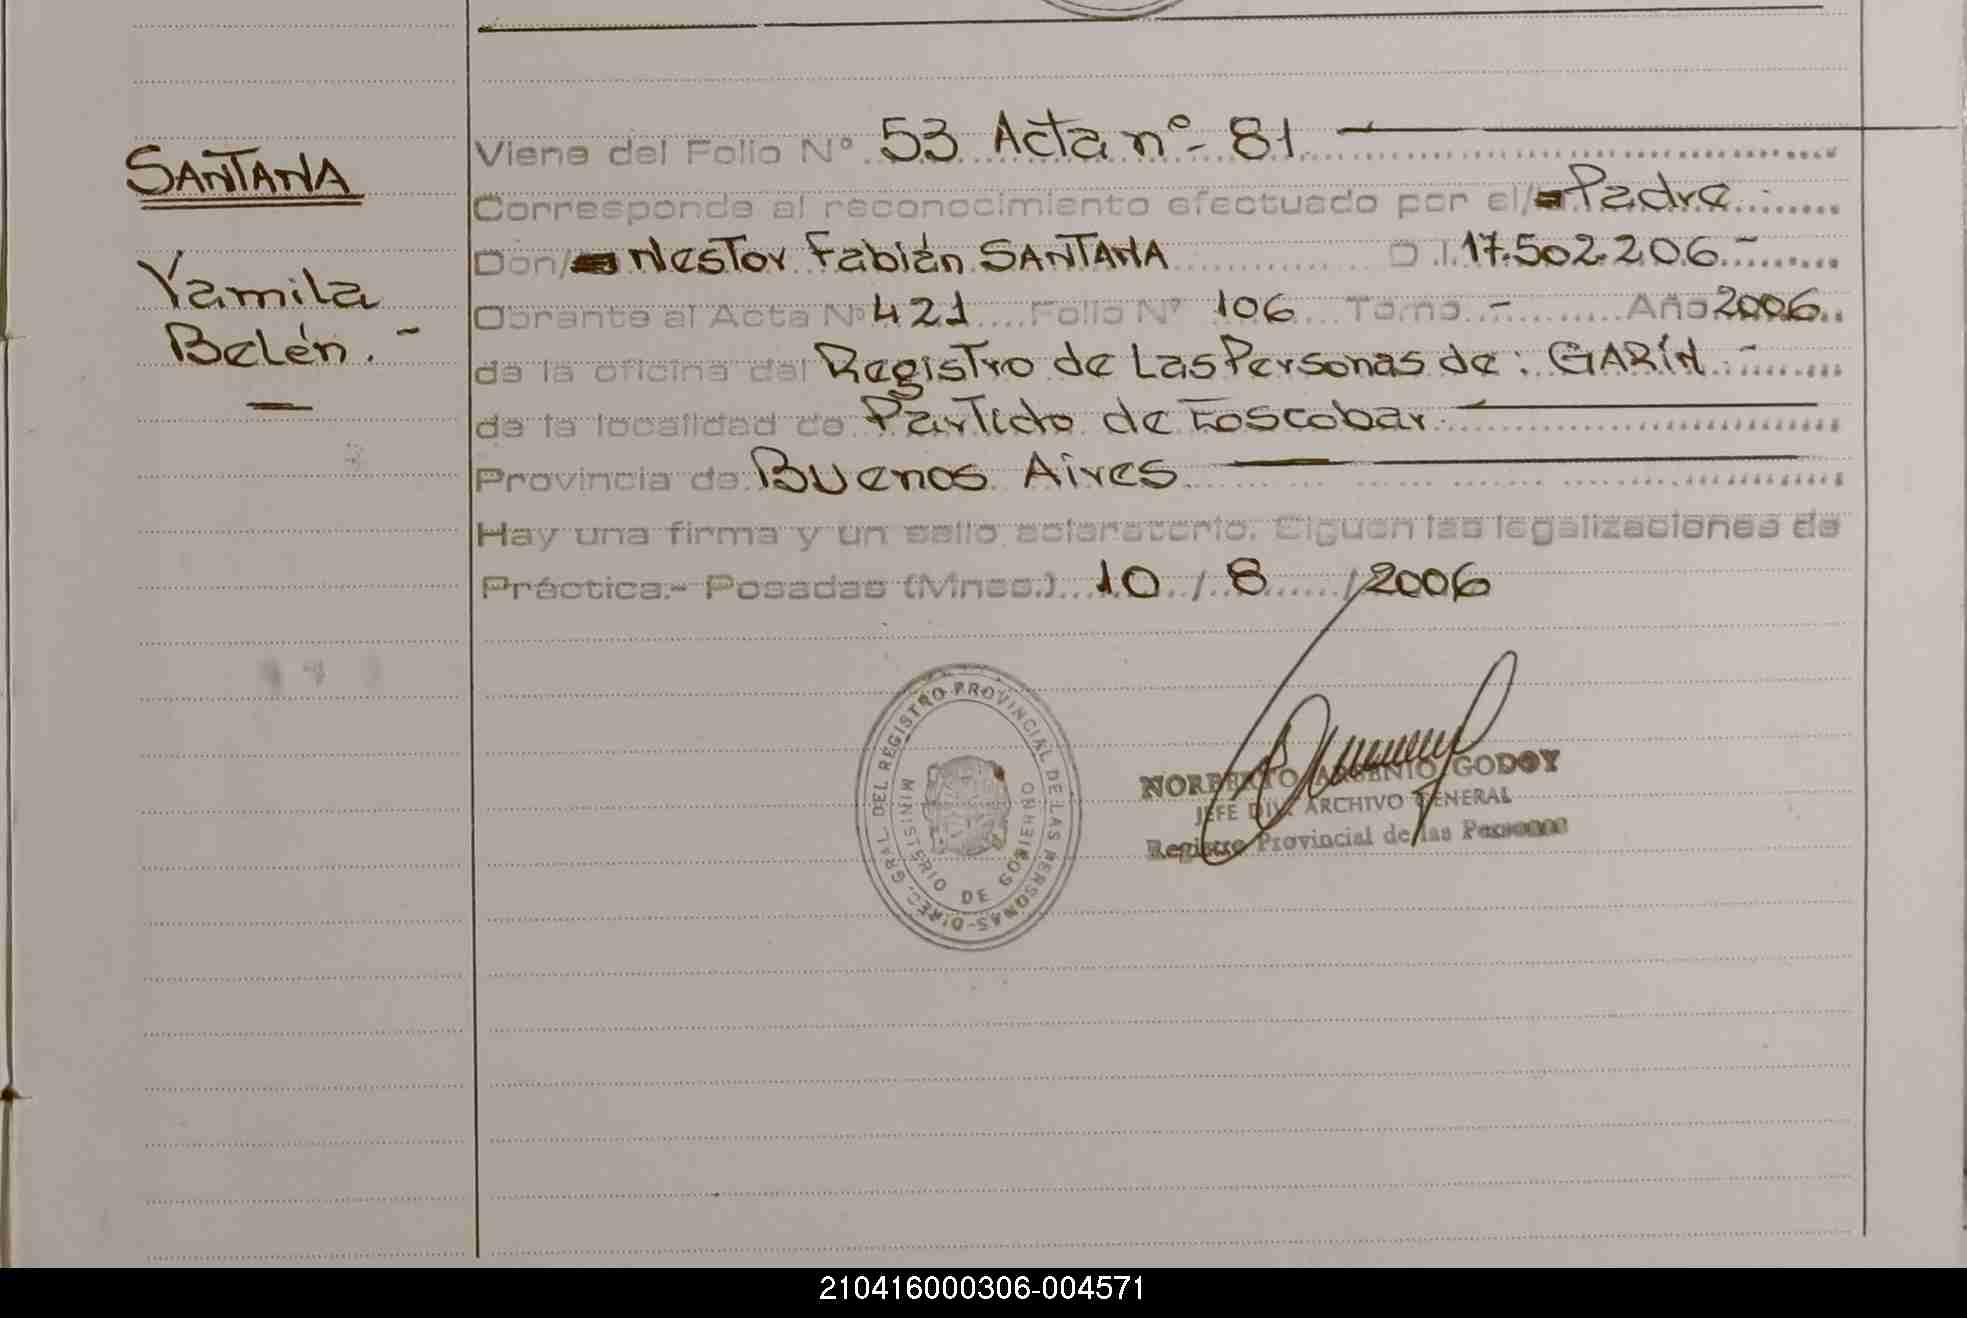 SANTANA
Yamila
Belén.-
Viene del Folio Nº 53 Acta nº- 81
Corresponde al reconocimiento efectuado por el/ Padre
Don/ Nestor Fabián SANTANA D.I. 17.502.206.-
Obrante al Acta Nº 421 Folio Nº 106 Tomo - Año 2006
de la oficina del Registro de Las Personas de: GARÍN.-
de la localidad de Partido de Escobar
Provincia de Buenos Aires
Hay una firma y un sello aclaratorio. Siguen las legalizaciones de
Práctica.- Posadas (Mnes.) 10 / 8 / 2006
DIREC. GRAL. DEL REGISTRO PROVINCIAL DE LAS PERSONAS-
MINISTERIO DE GOBIERNO
NORBERTO ARSENIO GODOY
JEFE DIV. ARCHIVO GENERAL
Registro Provincial de las Personas
210416000306-004571